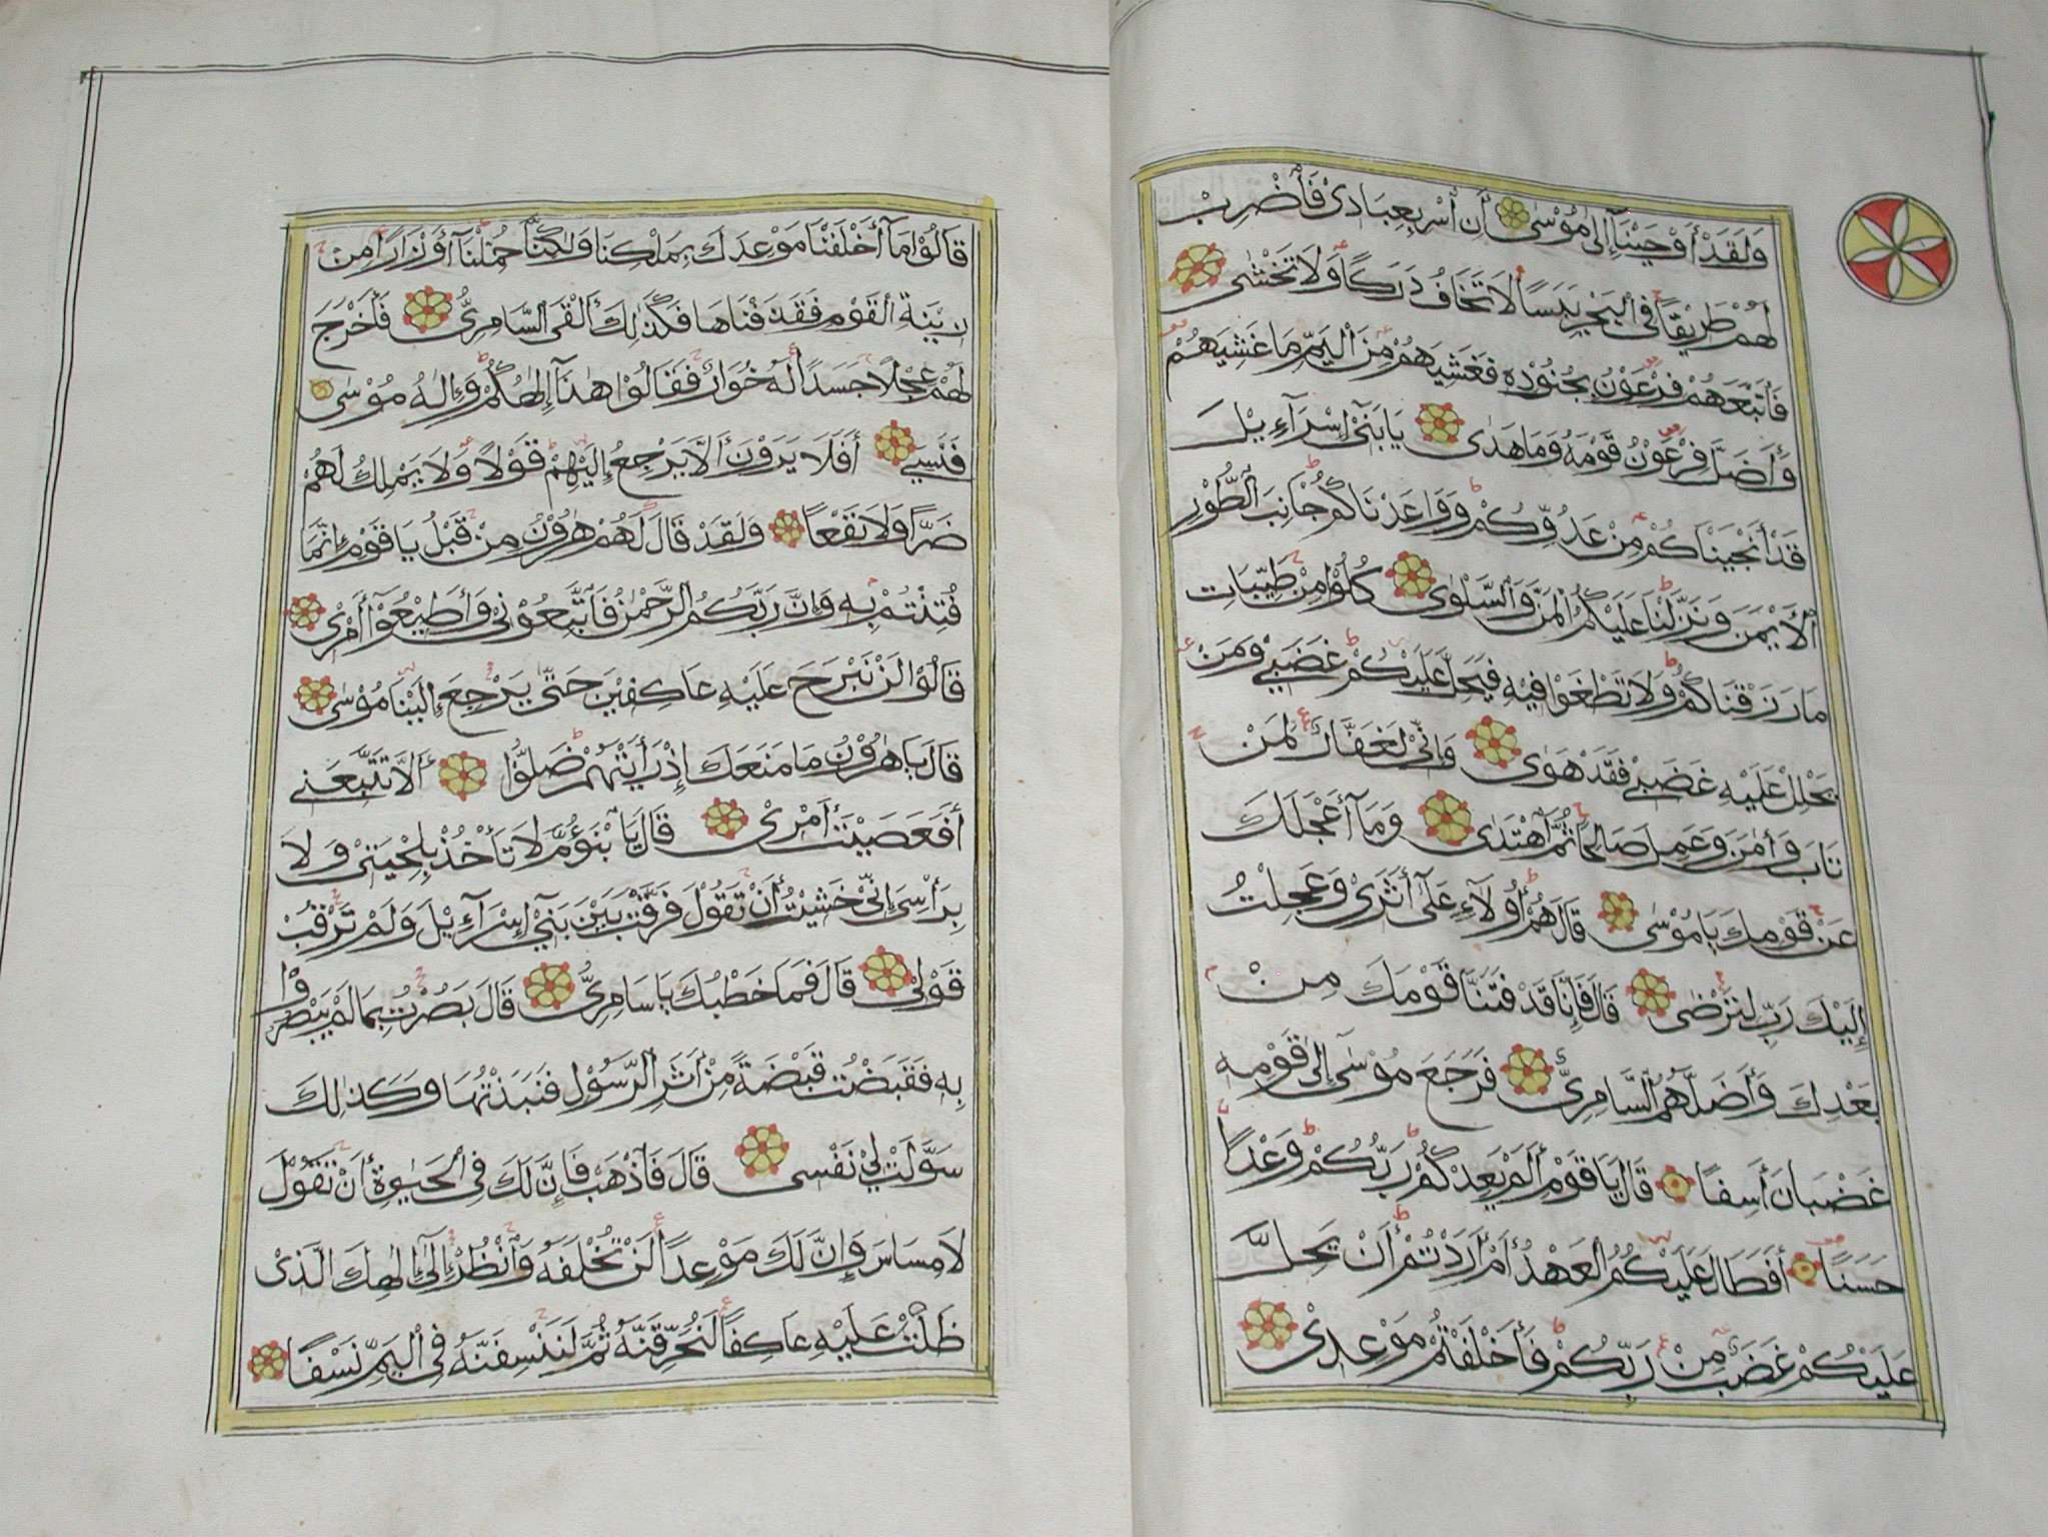 وَلَقَدْ أَوْحَيْنَآ إِلىٰ مُوْسٰى أَنْ أَسْرِ بِعِبَادِىْ فَاضْرِبْ
لَهُمْ طَرِيْقًا فِى الْبَحْرِ يَبَسًا لَا تَخَافُ دَرَكًا وَلَا تَخْشٰى
فَأَتْبَعَهُمْ فِرْعَوْنُ بِجُنُوْدِهِ فَغَشِيَهُمْ مِنَ الْيَمِّ مَا غَشِيَهُمْ
وَأَضَلَّ فِرْعَوْنُ قَوْمَهُ وَمَا هَدٰى يَا بَنِىْٓ إِسْرَآءِيْلَ
قَدْ أَنْجَيْنَاكُمْ مِنْ عَدُوِّكُمْ وَوَاعَدْنَاكُمْ جَانِبَ الطُّوْرِ
الْأَيْمَنَ وَنَزَّلْنَا عَلَيْكُمُ الْمَنَّ وَالسَّلْوٰى كُلُوْا مِنْ طَيِّبَاتِ
مَا رَزَقْنَاكُمْ وَلَا تَطْغَوْا فِيْهِ فَيَحِلَّ عَلَيْكُمْ غَضَبِىْ وَمَنْ
يَحْلِلْ عَلَيْهِ غَضَبِىْ فَقَدْ هَوٰى وَإِنِّىْ لَغَفَّارٌ لِمَنْ
تَابَ وَاٰمَنَ وَعَمِلَ صَالِحًا ثُمَّ اهْتَدٰى وَمَآ أَعْجَلَكَ
عَنْ قَوْمِكَ يَا مُوْسٰى قَالَ هُمْ أُولَآءِ عَلٰٓى أَثَرِىْ وَعَجِلْتُ
إِلَيْكَ رَبِّ لِتَرْضٰى قَالَ فَإِنَّا قَدْ فَتَنَّا قَوْمَكَ مِنْ
بَعْدِكَ وَأَضَلَّهُمُ السَّامِرِىُّ فَرَجَعَ مُوْسٰٓى إِلىٰ قَوْمِهِ
غَضْبَانَ أَسِفًا قَالَ يَا قَوْمِ أَلَمْ يَعِدْكُمْ رَبُّكُمْ وَعْدًا
حَسَنًا أَفَطَالَ عَلَيْكُمُ الْعَهْدُ أَمْ أَرَدْتُمْ أَنْ يَحِلَّ
عَلَيْكُمْ غَضَبٌ مِنْ رَبِّكُمْ فَأَخْلَفْتُمْ مَوْعِدِىْ
قَالُوْا مَآ أَخْلَفْنَا مَوْعِدَكَ بِمَلْكِنَا وَلٰكِنَّا حُمِّلْنَآ أَوْزَارًا مِنْ
زِيْنَةِ الْقَوْمِ فَقَذَفْنَاهَا فَكَذٰلِكَ أَلْقَى السَّامِرِىُّ فَأَخْرَجَ
لَهُمْ عِجْلًا جَسَدًا لَهُ خُوَارٌ فَقَالُوْا هٰذَآ إِلٰهُكُمْ وَإِلٰهُ مُوْسٰى
فَنَسِىَ أَفَلَا يَرَوْنَ أَلَّا يَرْجِعُ إِلَيْهِمْ قَوْلًا وَلَا يَمْلِكُ لَهُمْ
ضَرًّا وَلَا نَفْعًا وَلَقَدْ قَالَ لَهُمْ هٰرُوْنُ مِنْ قَبْلُ يَا قَوْمِ إِنَّمَا
فُتِنْتُمْ بِهِ وَإِنَّ رَبَّكُمُ الرَّحْمٰنُ فَاتَّبِعُوْنِىْ وَأَطِيْعُوْٓا أَمْرِىْ
قَالُوْا لَنْ نَبْرَحَ عَلَيْهِ عَاكِفِيْنَ حَتّٰى يَرْجِعَ إِلَيْنَا مُوْسٰى
قَالَ يَا هٰرُوْنُ مَا مَنَعَكَ إِذْ رَأَيْتَهُمْ ضَلُّوْٓا أَلَّا تَتَّبِعَنِ
أَفَعَصَيْتَ أَمْرِىْ قَالَ يَا بْنَؤُمَّ لَا تَأْخُذْ بِلِحْيَتِىْ وَلَا
بِرَأْسِىْٓ إِنِّىْ خَشِيْتُ أَنْ تَقُوْلَ فَرَّقْتَ بَيْنَ بَنِىْٓ إِسْرَآءِيْلَ وَلَمْ تَرْقُبْ
قَوْلِىْ قَالَ فَمَا خَطْبُكَ يَا سَامِرِىُّ قَالَ بَصُرْتُ بِمَا لَمْ يَبْصُرُوْا
بِهِ فَقَبَضْتُ قَبْضَةً مِنْ أَثَرِ الرَّسُوْلِ فَنَبَذْتُهَا وَكَذٰلِكَ
سَوَّلَتْ لِىْ نَفْسِى قَالَ فَاذْهَبْ فَإِنَّ لَكَ فِى الْحَيٰوةِ أَنْ تَقُوْلَ
لَا مِسَاسَ وَإِنَّ لَكَ مَوْعِدًا لَنْ تُخْلَفَهُ وَانْظُرْ إِلٰٓى إِلٰهِكَ الَّذِىْ
ظَلْتَ عَلَيْهِ عَاكِفًا لَنُحَرِّقَنَّهُ ثُمَّ لَنَنْسِفَنَّهُ فِى الْيَمِّ نَسْفًا